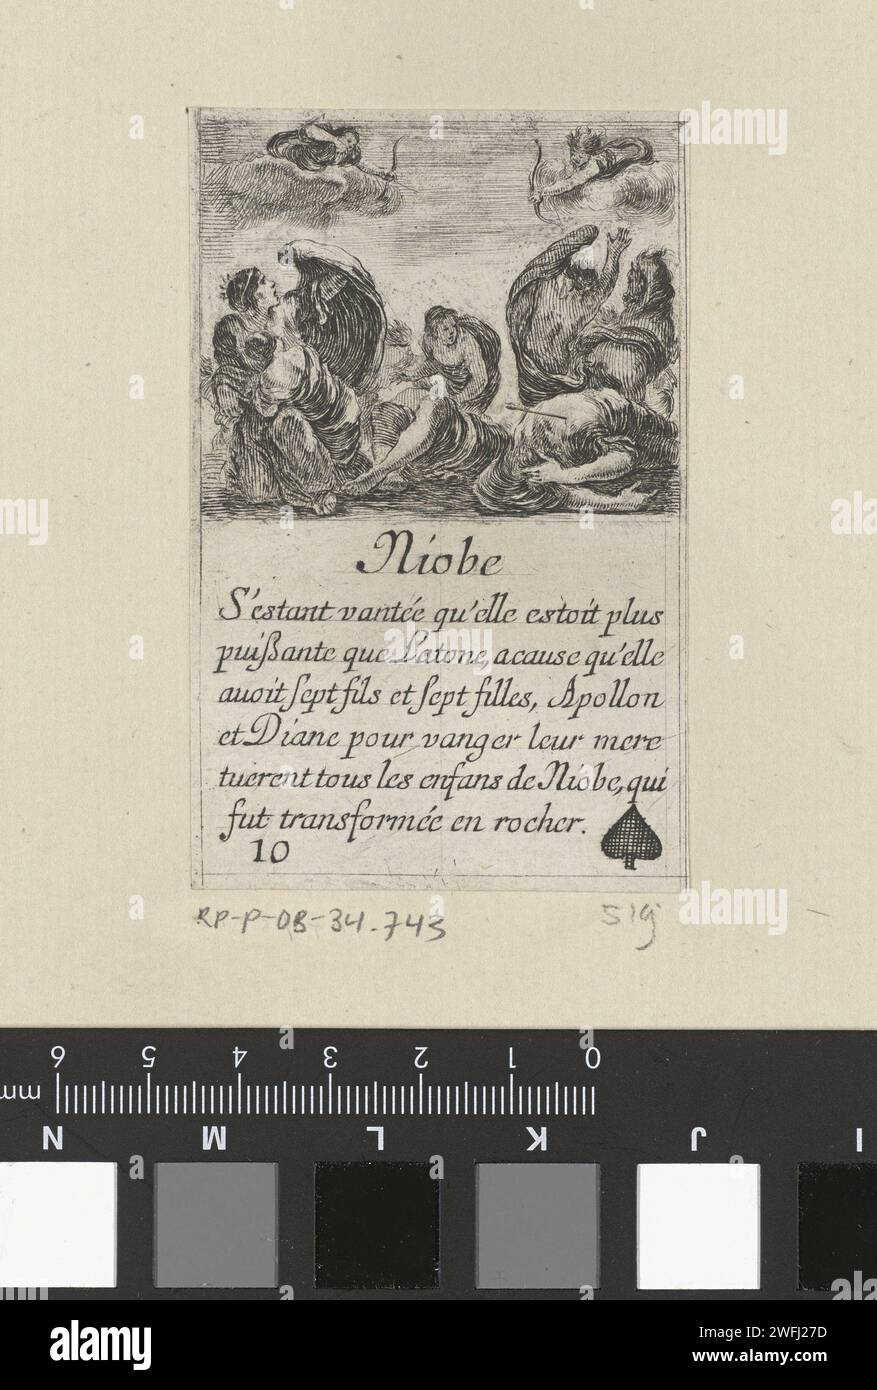 Niobe
S'estant vantée qu'elle estoit plus
puißante que Latone, acause qu'elle
auoit ſept fils et ſept filles, Apollon
et Diane pour vanger leur mere
tuerent tous les enfans de Niobe, qui
fut transformée en rocher.
10
RP-P-OB-34.743
519
6 5 4 3 2 1 0
mm
N M L K J I
alamy
Image ID: 2WFJ27D
www.alamy.com